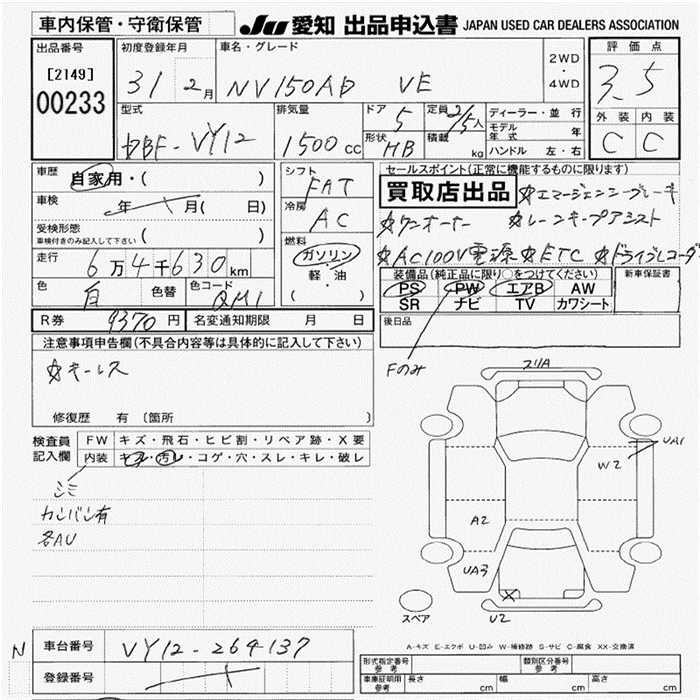 車内保管・守衛保管 JU 愛知 出品申込書 JAPAN USED CAR DEALERS ASSOCIATION
出品番号 初度登録年月 車名・グレード 2WD ・ 4WD 評価点
[2149] 31 2月 NV150AD VE 3.5
00233 型式 排気量 ドア 5 定員 2/5人 ディーラー・並行 外装 内装
DBF-VY12 1500cc 形状 HB 積載 kg モデル年式 年 C C
ハンドル 左・右
車歴 自家用・( ) シフト FAT セールスポイント(正常に機能するものに限り)
車検 年 月( 日) 冷房 AC 買取店出品 ☆エマージェンシーブレーキ
受検形態 ( ) ☆ワンオーナー ☆レーンキープアシスト
車検付きのみ記入して下さい
走行 6万4千630km 燃料 ガソリン・軽・油 ( ) ☆AC100V電源 ☆ETC ☆ドライブレコーダ
色 白 色替 色コード QM1 装備品(純正品に限り○をつけてください) 新車保証書
PS PW エアB AW
SR ナビ TV カワシート
R券 9370円 名変通知期限 月 日 後日品
注意事項申告欄(不具合内容等は具体的に記入して下さい)
☆キーレス Fのみ
修復歴 有 〔箇所 〕
検査員記入欄 FW キズ・飛石・ヒビ割・リペア跡・X要
内装 キズ・汚レ・コゲ・穴・スレ・キレ・破レ
シミ
カンバン有
各AU
スリA
UA1
W2
A2
UA3
X
U2
スペア
A-キズ E-エクボ U-凹み W-補修跡 S-サビ C-腐食 XX-交換済
N 車台番号 VY12-264137
登録番号
形式指定番号 参考 類別区分番号 参考
車庫証明用 参考 長さ cm 幅 cm 高さ cm